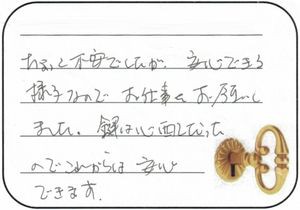 ちょっと不安でしたが、安心できる
様子なので お仕事を お願いし
ました。鍵は心配だった
のでこれからは 安心
できます。